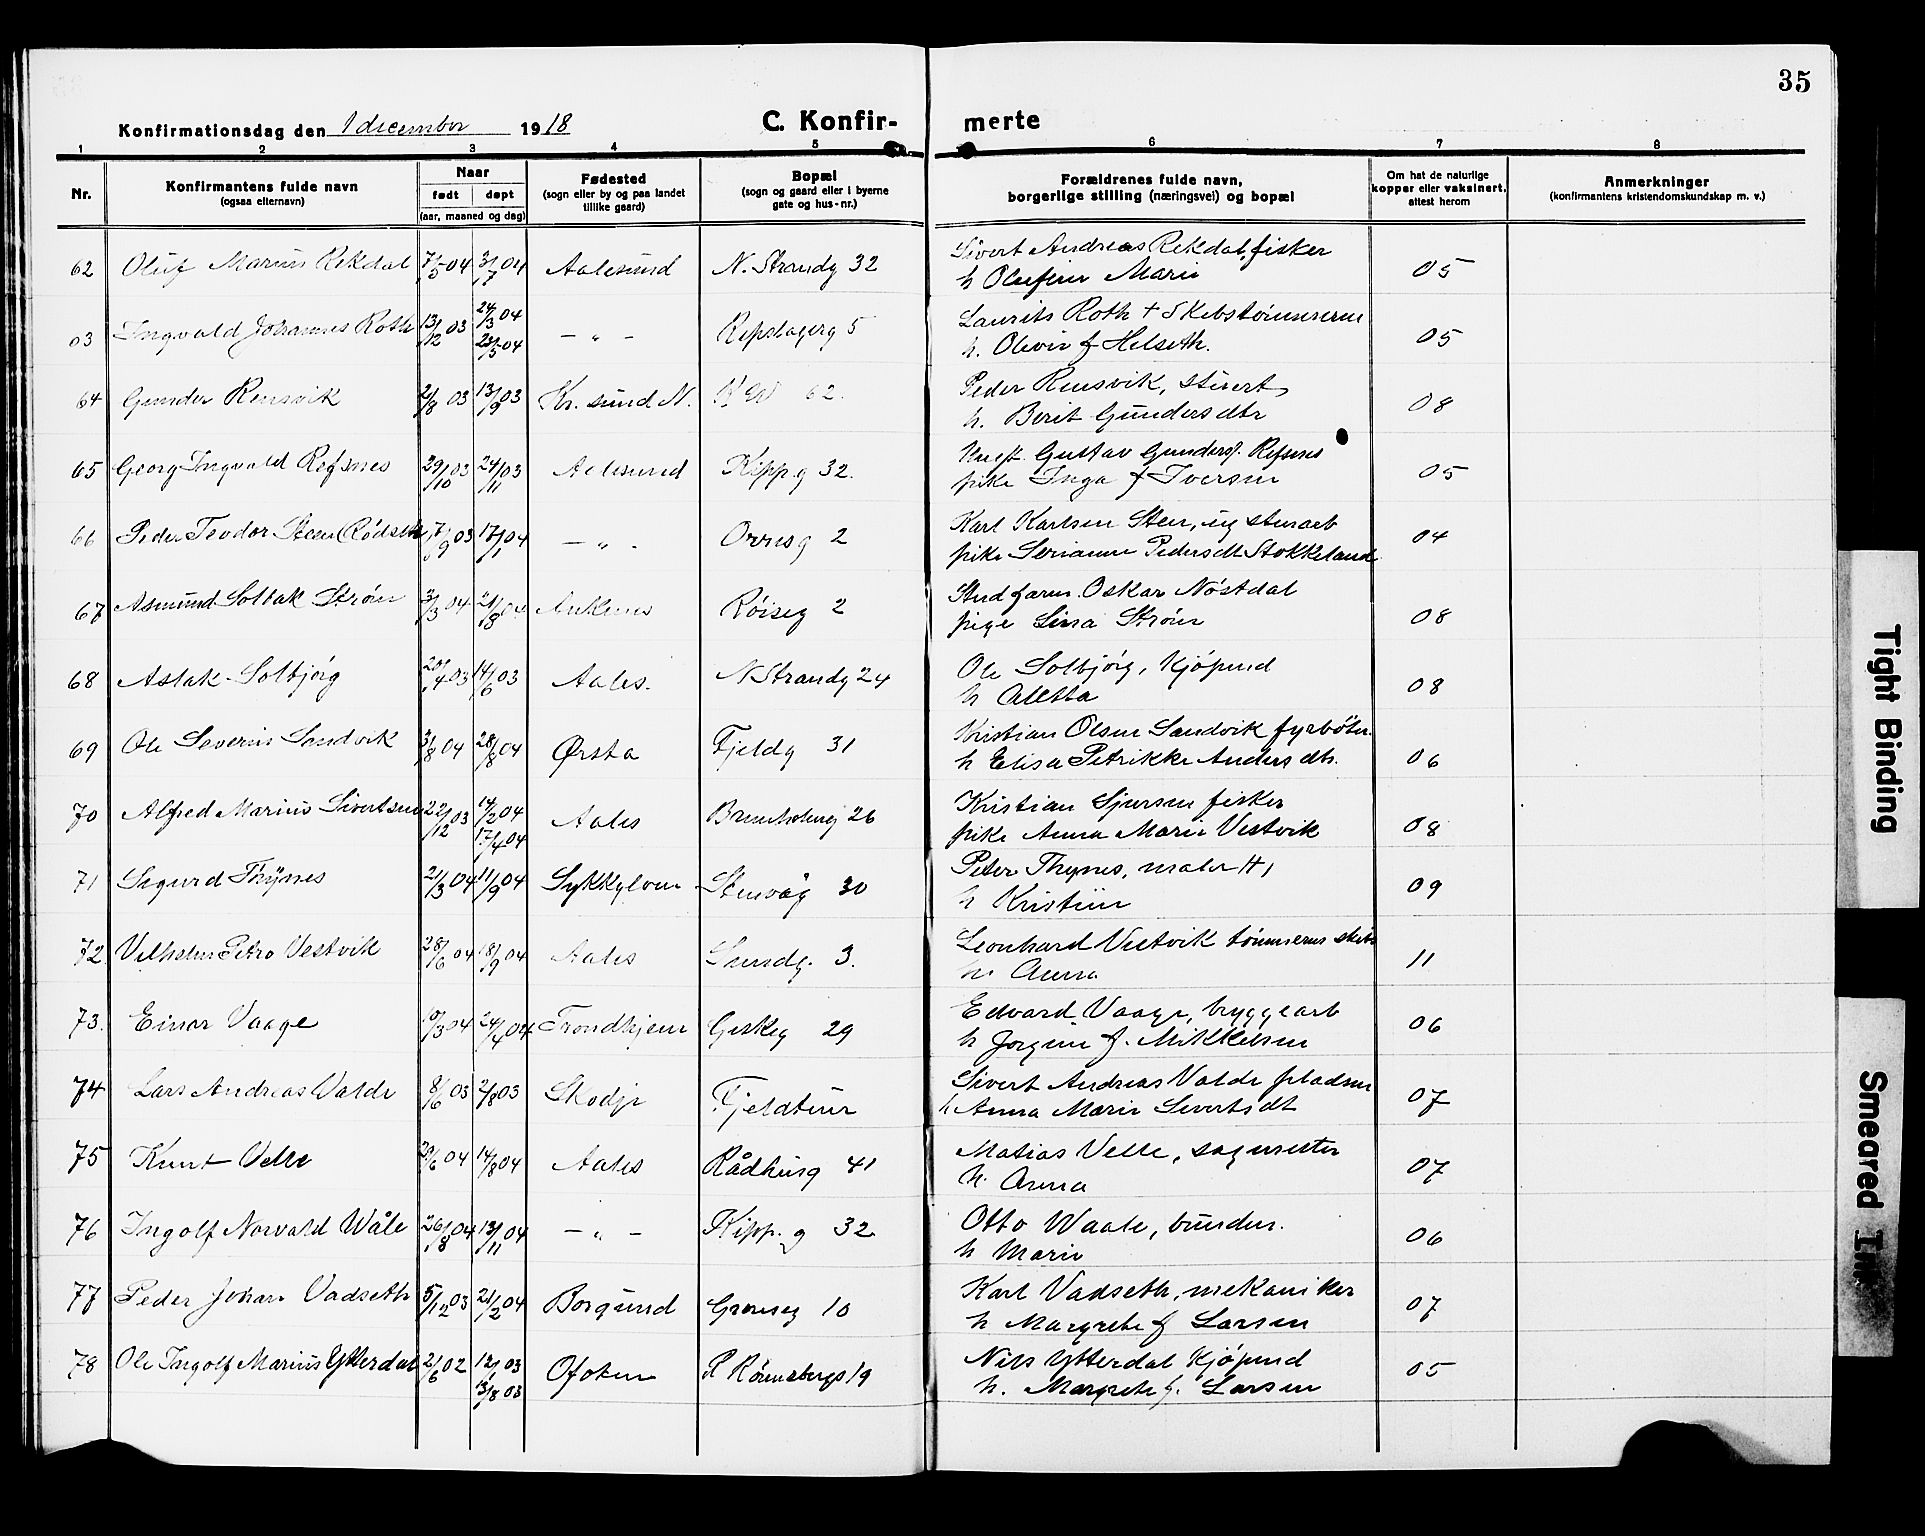 35
Konfirmationsdag den 1 december 1918
C. Konfir- merte
1 2 3 4 5 6 7 8
Nr.
Konfirmantens fulde navn
(ogsaa efternavn)
Naar
født døpt
(aar, maaned og dag)
Fødested
(sogn eller by og paa landet
tillike gaard)
Bopæl
(sogn og gaard eller i byerne
gate og hus-nr.)
Forældrenes fulde navn,
borgerlige stilling (næringsvei) og bopæl
Om hat de naturlige
kopper eller vaksinert,
attest herom
Anmerkninger
(konfirmantens kristendomskundskap m. v.)
62 Oluf Marius Rekdal 7/5 04 3/7 04 Aalesund N. Strandg 32 Sivert Andreas Rekdal, fisker
h Olufine Marie 05
63 Ingvald Johannes Roth 13/12 03 24/3 04 — „ — Repslagerg 5 Laurits Roth + Skibstømmerm
h. Olivie f Helseth. 05
64 Gunder Rensvik 2/8 03 13/9 03 Kr. sund N. 62. Peder Rensvik, stuert
h. Berit Gundersdtr 08
65 Georg Ingvald Refsnes 29/10 03 24/11 03 Aalesund Kipp.g 32. Ungk. Gustav Gunders. Refsnes
pike Inga f Iversen 05
66 Peder Teodor Steen (Rødseth 17/9 03 17/1 04 — „ - Ovrusg 2 Karl Karlsen Steen, stenarb
pike Serianne Pedersdt Stokkeland 04
67 Asmund Solbak Strøm 3/3 04 21/8 04 Ankenes Røiseg 2 Oskar Nøstdal
pige Lina Strøm 08
68 Aslak Solbjørg 20/4 03 14/6 03 Aales. N Strandg 24 Ole Solbjørg, Kjøpmd
h Aletta 08
69 Ole Severin Sandvik 3/8 04 28/8 04 Ørsta Fjeldg 31 Kristian Olsen Sandvik fyrbøter
h Elisa Petrikke Andersdtr. 06
70 Alfred Marius Sivertsen 22/12 03 14/2 04 17/4 04 Aales Bremholmg 26 Kristian Sjursen fisker
pike Anna Marie Vestvik 08
71 Sigurd Thynes 21/3 04 11/9 04 Sykkylven Stenvåg 30 Peter Thynes, maler
h Kristine 09
72 Vilhelm Petro Vestvik 28/6 04 18/9 04 Aales Sundg. 3. Leonhard Vestvik tømmerm skibs
h. Anna 11
73. Einar Vaage 10/3 04 24/4 04 Trondhjem Giskeg 29 Edvard Vaage, bryggearb
h Jorgine f. Mikkelsen 06
74 Lars Andreas Valde 8/6 03 2/8 03 Skodje Fjeldtun Sivert Andreas Valde pladsm
h Anna Marie Sivertsdt 07
75 Knut Velle 29/6 04 14/8 04 Aales Rådhusg 41 Matias Velle, sagmester
h. Anna 07
76 Ingolf Norvald Wåle 26/8 04 13/11 04 — „ — Kipp. g 32 Otto Waale, bunder.
h Marie 06
77 Peder Johan Vadseth 5/12 03 21/2 04 Borgund Grensg 10 Karl Vadseth, mekaniker
h Margrete f Larsen 07
78 Ole Ingolf Marius Ytterdal 2/6 02 12/1 03 13/8 03 Ofoten R Rønnebergs 19 Nils Ytterdal Kjøpmd
h. Margrete f. Larsen 05
Tight Binding
Smeared Ink